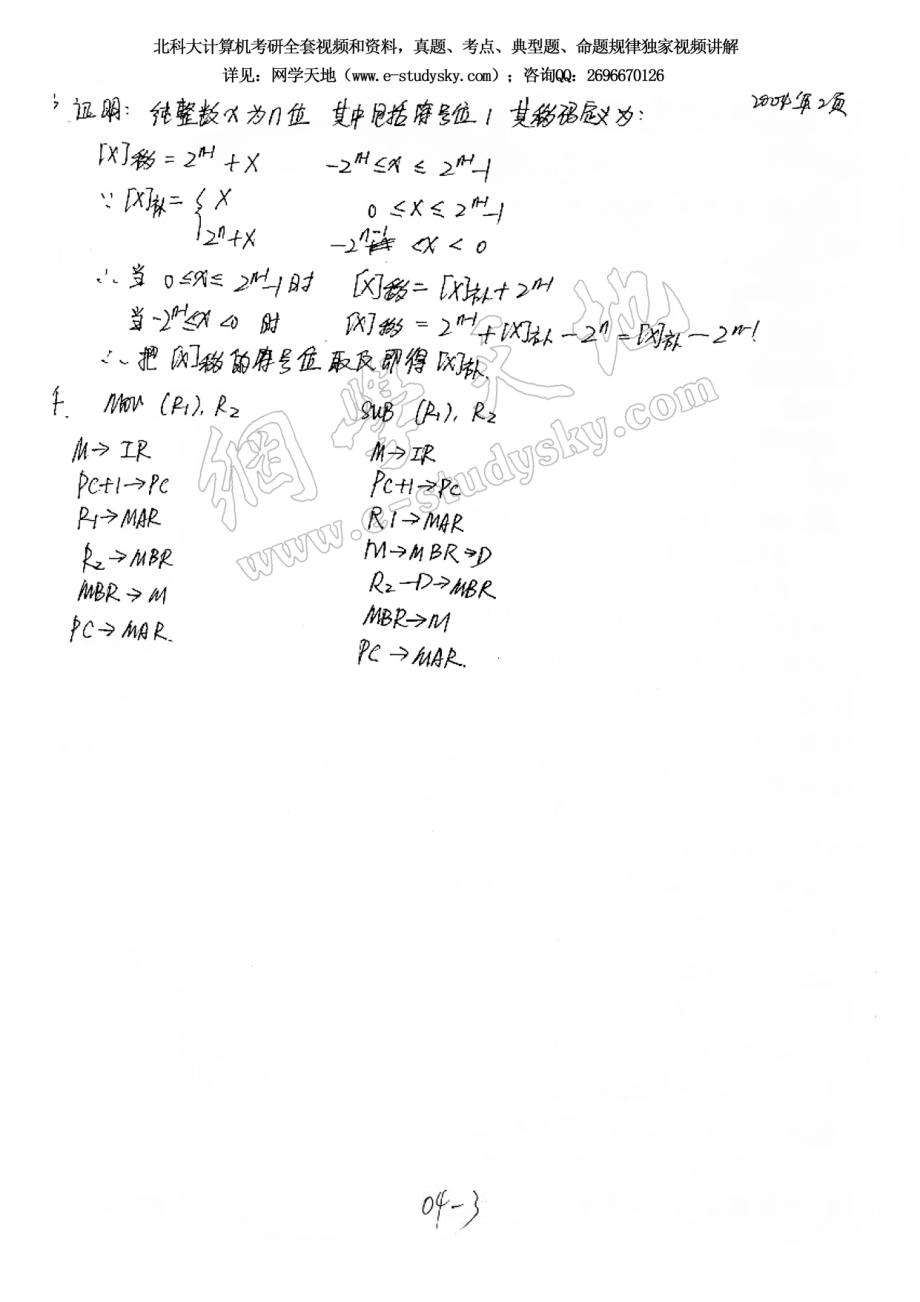 北科大计算机考研全套视频和资料，真题、考点、典型题、命题规律独家视频讲解
详见：网学天地（www.e-studysky.com）；咨询QQ：2696670126
2004年2页
证明：纯整数X为n位 其中包括符号位1 其移码定义为：
[X]移 = 2ⁿ⁻¹ + X -2ⁿ⁻¹ ≤ x ≤ 2ⁿ⁻¹-1
∵ [X]补 = { X 0 ≤ X ≤ 2ⁿ⁻¹-1
2ⁿ+X -2ⁿ⁻¹ ≤ X < 0
∴ 当 0 ≤ x ≤ 2ⁿ⁻¹-1时 [X]移 = [X]补 + 2ⁿ⁻¹
当 -2ⁿ⁻¹ ≤ x < 0 时 [X]移 = 2ⁿ⁻¹ + [X]补 - 2ⁿ = [X]补 - 2ⁿ⁻¹
∴ 把 [X]移的符号位取反即得[X]补.
MOV (R₁), R₂ SUB (R₁), R₂
M→IR M→IR
PC+1→PC PC+1→PC
R₁→MAR R1→MAR
R₂→MBR M→MBR→D
MBR→M R₂-D→MBR
PC→MAR. MBR→M
PC→MAR.
網學天地
www.e-studysky.com
04-3